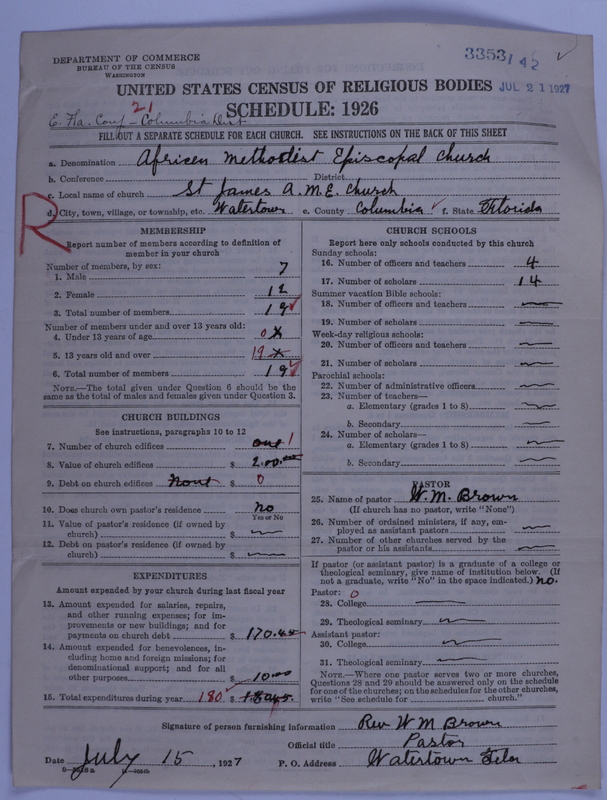 DEPARTMENT OF COMMERCE
BUREAU OF THE CENSUS
WASHINGTON
3353/42
UNITED STATES CENSUS OF RELIGIOUS BODIES
JUL 21 1927
SCHEDULE: 1926
21
E. Fla. Conf - Columbia Dist
FILL OUT A SEPARATE SCHEDULE FOR EACH CHURCH. SEE INSTRUCTIONS ON THE BACK OF THIS SHEET
a. Denomination African Methodist Episcopal Church
b. Conference District
c. Local name of church St James A.M.E. Church
d. City, town, village, or township, etc. Watertown e. County Columbia f. State Florida
R
MEMBERSHIP
Report number of members according to definition of member in your church
Number of members, by sex:
1. Male 7
2. Female 12
3. Total number of members 19
Number of members under and over 13 years old:
4. Under 13 years of age 0 x
5. 13 years old and over 19 x
6. Total number of members 19
NOTE.—The total given under Question 6 should be the same as the total of males and females given under Question 3.
CHURCH BUILDINGS
See instructions, paragraphs 10 to 12
7. Number of church edifices one 1
8. Value of church edifices $
9. Debt on church edifices None $ 0
10. Does church own pastor's residence No
Yes or No
11. Value of pastor's residence (if owned by church) $
12. Debt on pastor's residence (if owned by church) $
EXPENDITURES
Amount expended by your church during last fiscal year
13. Amount expended for salaries, repairs, and other running expenses; for improvements or new buildings; and for payments on church debt $ 170.00
14. Amount expended for benevolences, including home and foreign missions; for denominational support; and for all other purposes $ 10.00
15. Total expenditures during year 180 $
CHURCH SCHOOLS
Report here only schools conducted by this church
Sunday schools:
16. Number of officers and teachers 4
17. Number of scholars 14
Summer vacation Bible schools:
18. Number of officers and teachers
19. Number of scholars
Week-day religious schools:
20. Number of officers and teachers
21. Number of scholars
Parochial schools:
22. Number of administrative officers
23. Number of teachers—
a. Elementary (grades 1 to 8)
b. Secondary
24. Number of scholars—
a. Elementary (grades 1 to 8)
b. Secondary
PASTOR
25. Name of pastor W.M. Brown
(If church has no pastor, write "None")
26. Number of ordained ministers, if any, employed as assistant pastors
27. Number of other churches served by the pastor or his assistants
If pastor (or assistant pastor) is a graduate of a college or theological seminary, give name of institution below. (If not a graduate, write "No" in the space indicated.) no.
Pastor: 0
28. College
29. Theological seminary
Assistant pastor:
30. College
31. Theological seminary
NOTE.—Where one pastor serves two or more churches, Questions 28 and 29 should be answered only on the schedule for one of the churches; on the schedules for the other churches, write "See schedule for church."
Signature of person furnishing information Rev W M Brown
Official title Pastor
Date July 15, 1927 P. O. Address Watertown Fla